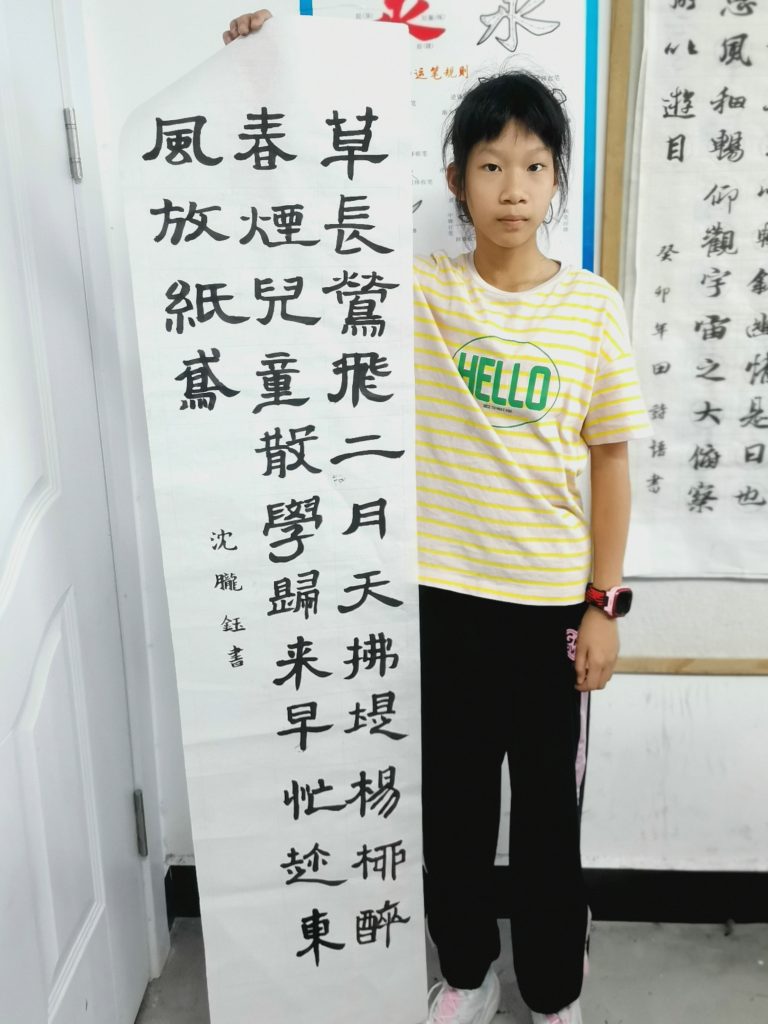 永
永
运笔规则
草長鶯飛二月天拂堤楊柳醉
春煙兒童散學歸来早忙趂東
風放紙鳶
沈朧鈺書
HELLO
以暢叙幽情是日也
風和暢仰觀宇宙之大俯察
所以遊目
癸卯年田詩悟書